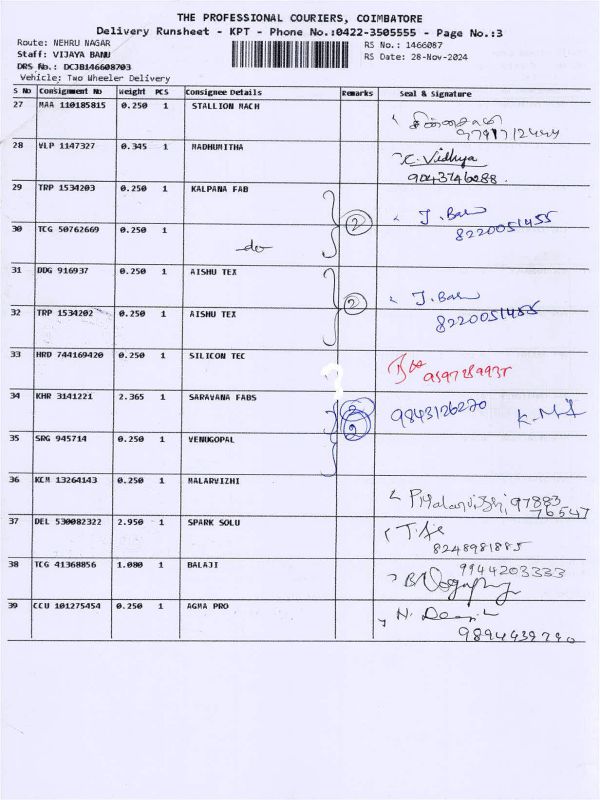 THE PROFESSIONAL COURIERS, COIMBATORE
Delivery Runsheet - KPT - Phone No.:0422-3505555 - Page No.:3
Route: NEHRU NAGAR RS No.: 1466087
Staff: VIJAYA BANU RS Date: 28-Nov-2024
DRS No.: DCJB146608703
Vehicle: Two Wheeler Delivery
S No Consignment No Weight PCS Consignee Details Remarks Seal & Signature
27 MAA 110185815 0.250 1 STALLION MACH
28 VLP 1147327 0.345 1 MADHUMITHA C. Vidhya
9043746088.
29 TRP 1534203 0.250 1 KALPANA FAB
2 J. Banu
8220051455
30 TCG 50762669 0.250 1 do
31 DDG 916937 0.250 1 AISHU TEX
2 J. Banu
8220051455
32 TRP 1534202 0.250 1 AISHU TEX
33 HRD 744169420 0.250 1 SILICON TEC
34 KHR 3141221 2.365 1 SARAVANA FABS 2 9843126270
2
35 SRG 945714 0.250 1 VENUGOPAL
36 KCM 13264143 0.250 1 MALARVIZHI
P. Malarvizhi, 97883
76547
37 DEL 530082322 2.950 1 SPARK SOLU
8248981885
38 TCG 41368856 1.080 1 BALAJI 9944203333
39 CCU 101275454 0.250 1 AGMA PRO